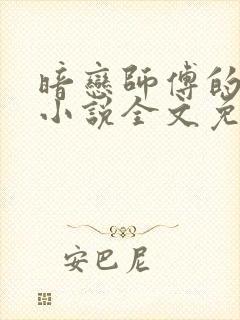 暗戀師傅的
小說全文免
安巴尼